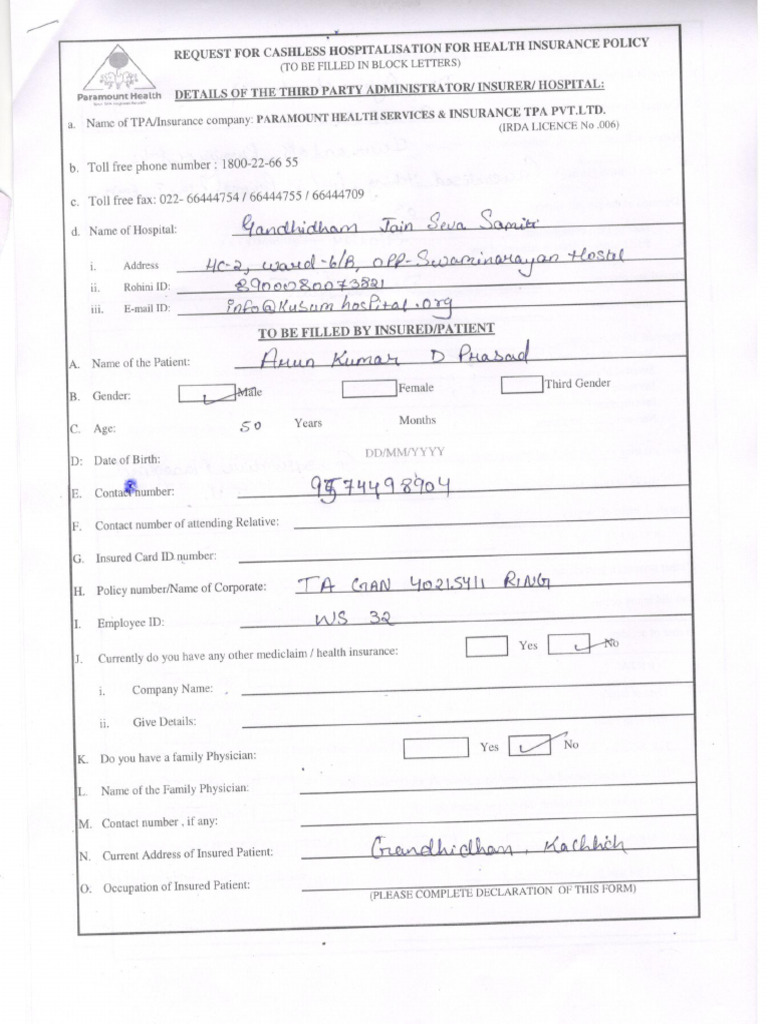 REQUEST FOR CASHLESS HOSPITALISATION FOR HEALTH INSURANCE POLICY
(TO BE FILLED IN BLOCK LETTERS)
Paramount Health
DETAILS OF THE THIRD PARTY ADMINISTRATOR/ INSURER/ HOSPITAL:
a. Name of TPA/Insurance company: PARAMOUNT HEALTH SERVICES & INSURANCE TPA PVT.LTD.
(IRDA LICENCE No .006)
b. Toll free phone number : 1800-22-66 55
c. Toll free fax: 022- 66444754 / 66444755 / 66444709
d. Name of Hospital: Gandhidham Jain Seva Samiti
i. Address 4C-2, ward-6/B, opp-Swaminarayan Hostel
ii. Rohini ID: 8900080073821
iii. E-mail ID: info@Kusumhospital.org
TO BE FILLED BY INSURED/PATIENT
A. Name of the Patient: Arun Kumar D Prasad
B. Gender: Male Female Third Gender
C. Age: 50 Years Months
D: Date of Birth: DD/MM/YYYY
E. Contact number:
F. Contact number of attending Relative:
G. Insured Card ID number:
H. Policy number/Name of Corporate: TA GAN 40215411 RING
I. Employee ID: WS 32
J. Currently do you have any other mediclaim / health insurance: Yes No
i. Company Name:
ii. Give Details:
K. Do you have a family Physician: Yes No
L. Name of the Family Physician:
M. Contact number , if any:
N. Current Address of Insured Patient: Gandhidham, Kachhch
O. Occupation of Insured Patient:
(PLEASE COMPLETE DECLARATION OF THIS FORM)